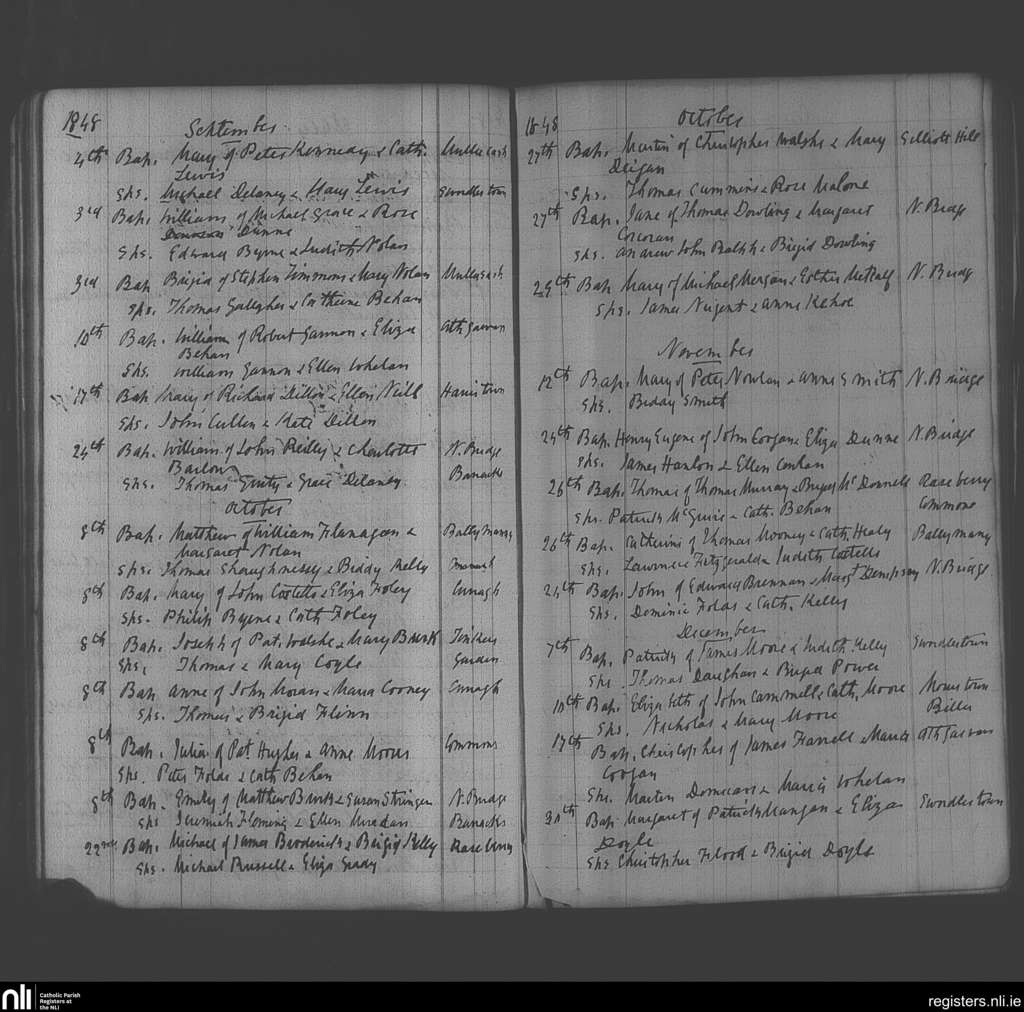 1848
September
4th Bap. Mary of Peter Kennedy & Cath.
Lewis
Sps. Michael Delaney & Mary Lewis Swordlestown
3rd Bap. William of Michael Grace & Rose
Dunne
Sps. Edward Byrne & Judith Nolan
3rd Bap. Brigid of Stephen Timmons & Mary Nolan
Sps. Thomas Gallagher & Catherine Behan
10th Bap. William of Robert Gannon & Eliza Athgarvan
Behan
Sps. William Gannon & Ellen Whelan
17th Bap. Mary of Richard Dillon & Ellen Neill Harristown
Sps. John Cullen & Kate Dillon
24th Bap. William of John Reilly & Charlotte N. Bridge
Barlow Barracks
Sps. Thomas & Grace Delaney
October
8th Bap. Matthew of William Flanagan & Ballymany
Margaret Nolan
Sps. Thomas Shaughnessy & Biddy Kelly
8th Bap. Mary of John Costello & Eliza Foley Curragh
Sps. Philip Byrne & Cath Foley
8th Bap. Joseph of Pat. Walshe & Mary Burk Tinkers
Sps. Thomas & Mary Coyle Garden
8th Bap. Anne of John Moran & Maria Cooney Curragh
Sps. Thomas & Brigid Flinn
8th Bap. Julia of Pat. Hughes & Anne Moore Commons
Sps. Peter Folds & Cath Behan
8th Bap. Emily of Matthew Burk & Susan Stringer N. Bridge
Sps. Jeremiah Fleming & Ellen Barracks
22nd Bap. Michael of James Broderick & Brigid Kelly Roseberry
Sps. Michael Russell & Eliza Grady
1848
October
27th Bap. Martin of Christopher Walshe & Mary Hill
Deegan
Sps. Thomas Cummins & Rose Malone
27th Bap. Jane of Thomas Dowling & Margaret N. Bridge
Corcoran
Sps. Andrew John & Brigid Dowling
29th Bap. Mary of Michael Morgan & Esther Metcalf N. Bridge
Sps. James Nugent & Anne Kehoe
November
12th Bap. Mary of Peter Nowlan & Anne Smith N. Bridge
Sps. Biddy Smith
24th Bap. Henry Eugene of John Coogan & Eliza Dunne N. Bridge
Sps. James Hanlon & Ellen
26th Bap. Thomas of Thomas Murray & Briget McDonnell Roseberry
Sps. Patrick McGuire & Cath. Behan Commons
26th Bap. Catherine of Thomas Mooney & Cath. Healy Ballymany
Sps. Lawrence Fitzgerald & Judith Costello
24th Bap. John of Edward Brennan & Margt Dempsey N. Bridge
Sps. Dominic Folds & Cath. Kelly
December
7th Bap. Patrick of James Moore & Judith Kelly Swordlestown
Sps. Thomas & Briged Power
10th Bap. Elizabeth of John Cammell & Cath. Moore Moorstown
Sps. Nicholas & Mary Moore Biller
17th Bap. Christopher of James Farrell & Maria Athgarvan
Coogan
Sps. Martin & Maria Whelan
30th Bap. Margaret of Patrick Mangan & Eliza Swordlestown
Doyle
Sps Christopher Flood & Brigid Doyle
nli
Catholic Parish
Registers at
the NLI
registers.nli.ie